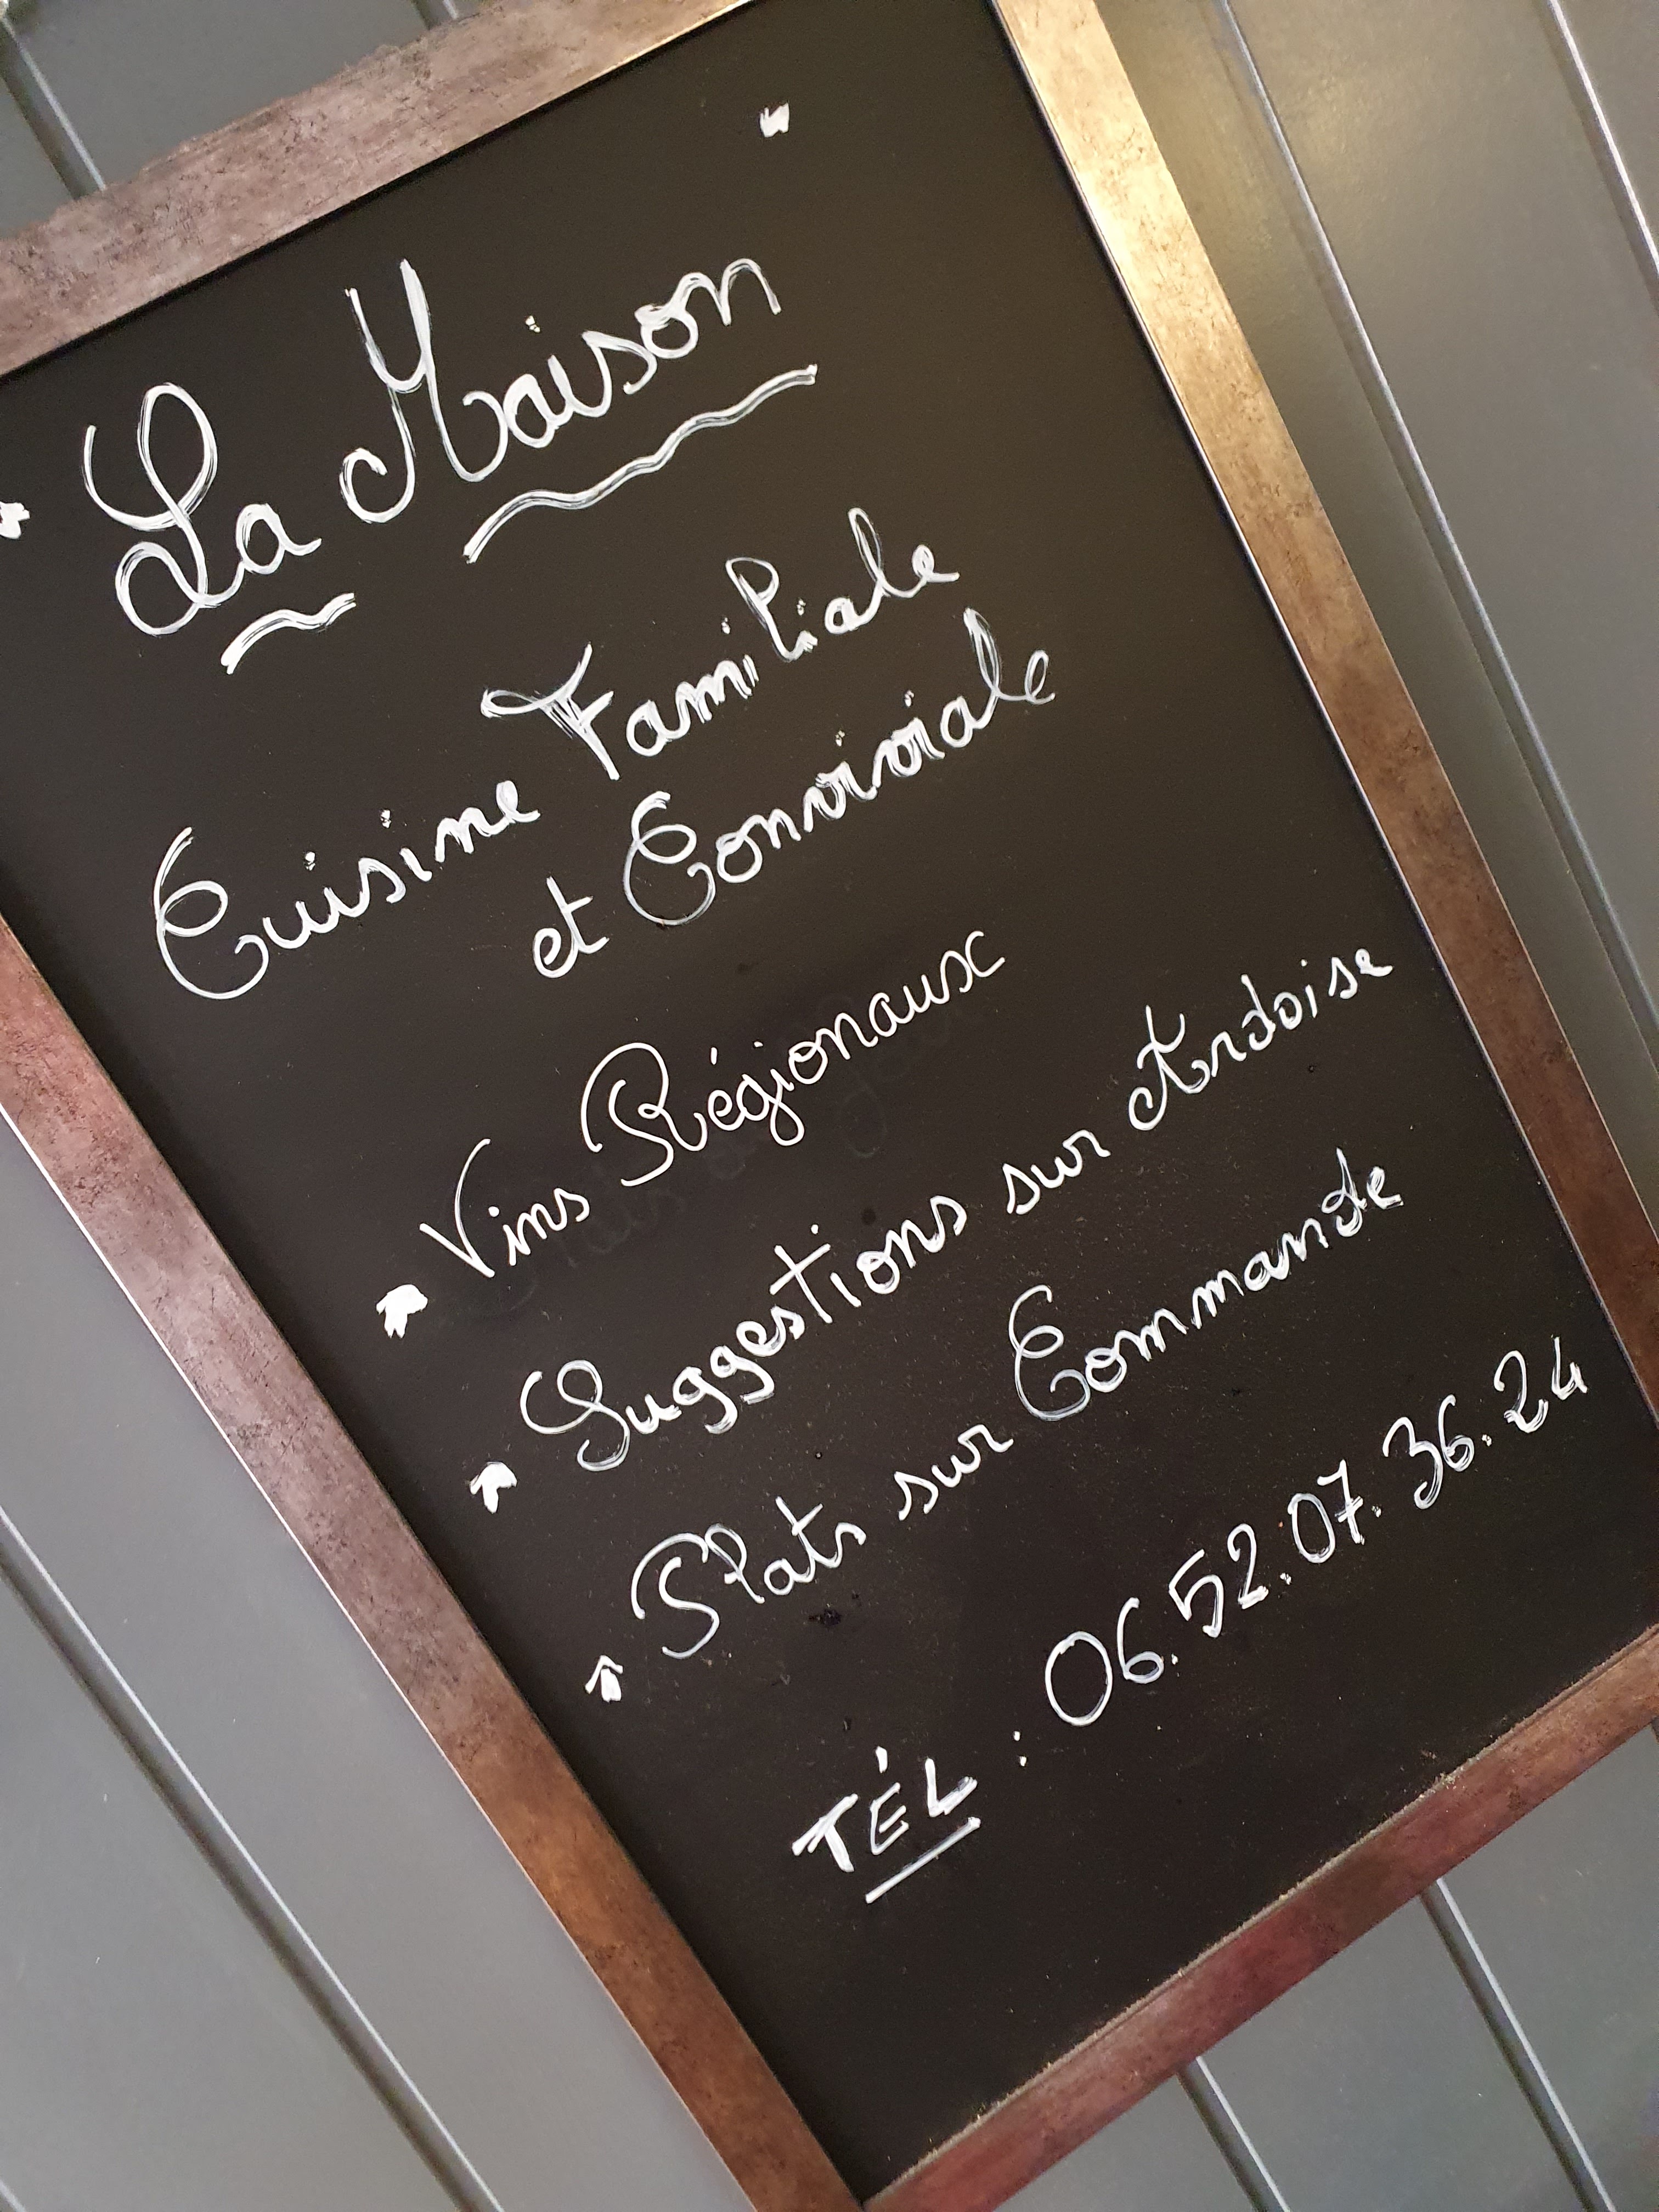 La Maison
Cuisine Familiale
et Conviviale
Vins Régionaux
Suggestions sur Ardoise
Plats sur Commande
TÉL : 06.52.07.36.24